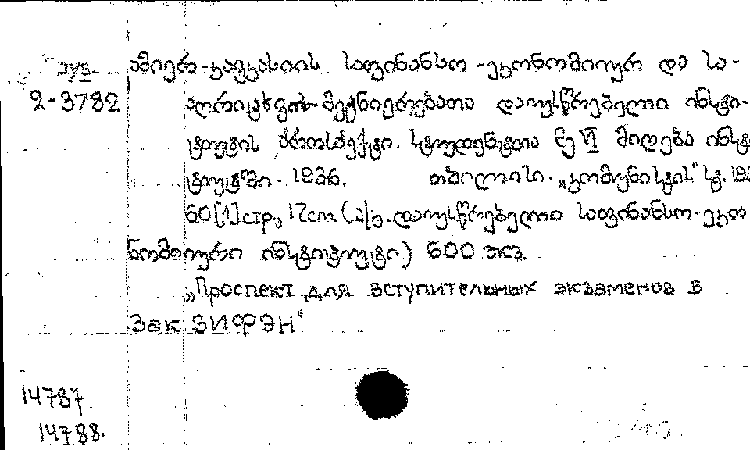 ამიერ-კავკასიის საფინანსო-ეკონომიურ და სა-
2-3782 აღრიცხვო მეცნიერებათა დაუსწრებელი ინსტი-
ტუტის პროსპექტი. სტუდენტთა მიღება ინსტ
ტუტში. 1936. თბილისი. „კომუნისტის" სტ. 193
60[1]стр., 17cm. (ა/კ. დაუსწრებელი საფინანსო-ეკო
ნომიური ინსტიტუტი) 600 экз.
„Проспект для вступительных экзаменов в
Зак ЗИФЭИ"
14787
14788.